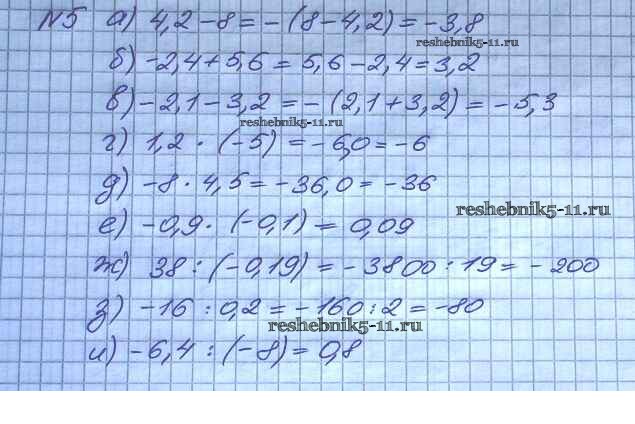 №5 а) 4,2 - 8 = - (8 - 4,2) = - 3,8
reshebnik5-11.ru
б) -2,4 + 5,6 = 5,6 - 2,4 = 3,2
в) -2,1 - 3,2 = - (2,1 + 3,2) = - 5,3
reshebnik5-11.ru
г) 1,2 · (-5) = - 6,0 = - 6
д) -8 · 4,5 = - 36,0 = - 36
reshebnik5-11.ru
е) -0,9 · (-0,1) = 0,09
ж) 38 : (-0,19) = - 3800 : 19 = - 200
з) -16 : 0,2 = -160 : 2 = -80
reshebnik5-11.ru
и) -6,4 : (-8) = 0,8